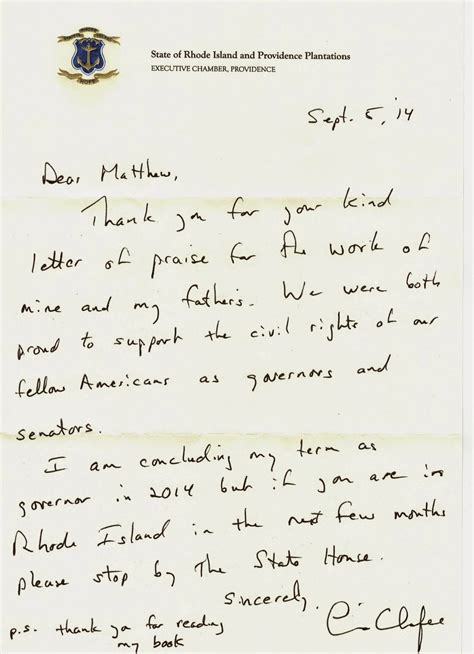 State of Rhode Island and Providence Plantations
EXECUTIVE CHAMBER, PROVIDENCE
Sept. 5, '14
Dear Matthew,
Thank you for your kind
letter of praise for the work of
mine and my father's. We were both
proud to support the civil rights of our
fellow Americans as governors and
senators.
I am concluding my term as
governor in 2014 but if you are in
Rhode Island in the next few months
please stop by The State House.
Sincerely,
p.s. thank you for reading
my book